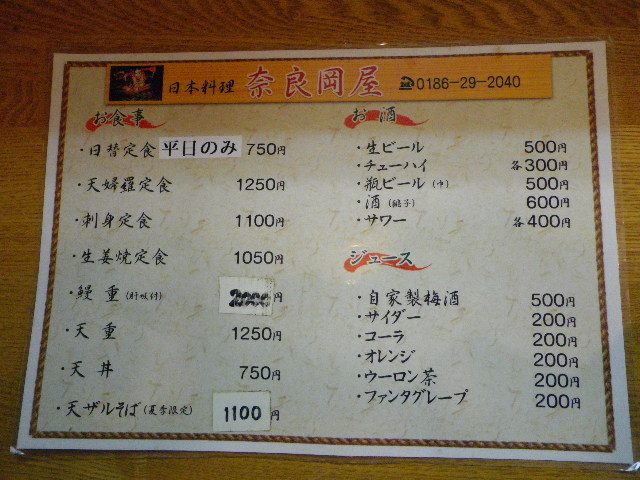 日本料理 奈良岡屋 0186-29-2040
お食事
・日替定食 平日のみ 750円
・天婦羅定食 1250円
・刺身定食 1100円
・生姜焼定食 1050円
・鰻重(肝吸付) 円
・天重 1250円
・天丼 750円
・天ザルそば(夏季限定) 1100円
お酒
・生ビール 500円
・チューハイ 各300円
・瓶ビール(中) 500円
・酒(銚子) 600円
・サワー 各400円
ジュース
・自家製梅酒 500円
・サイダー 200円
・コーラ 200円
・オレンジ 200円
・ウーロン茶 200円
・ファンタグレープ 200円